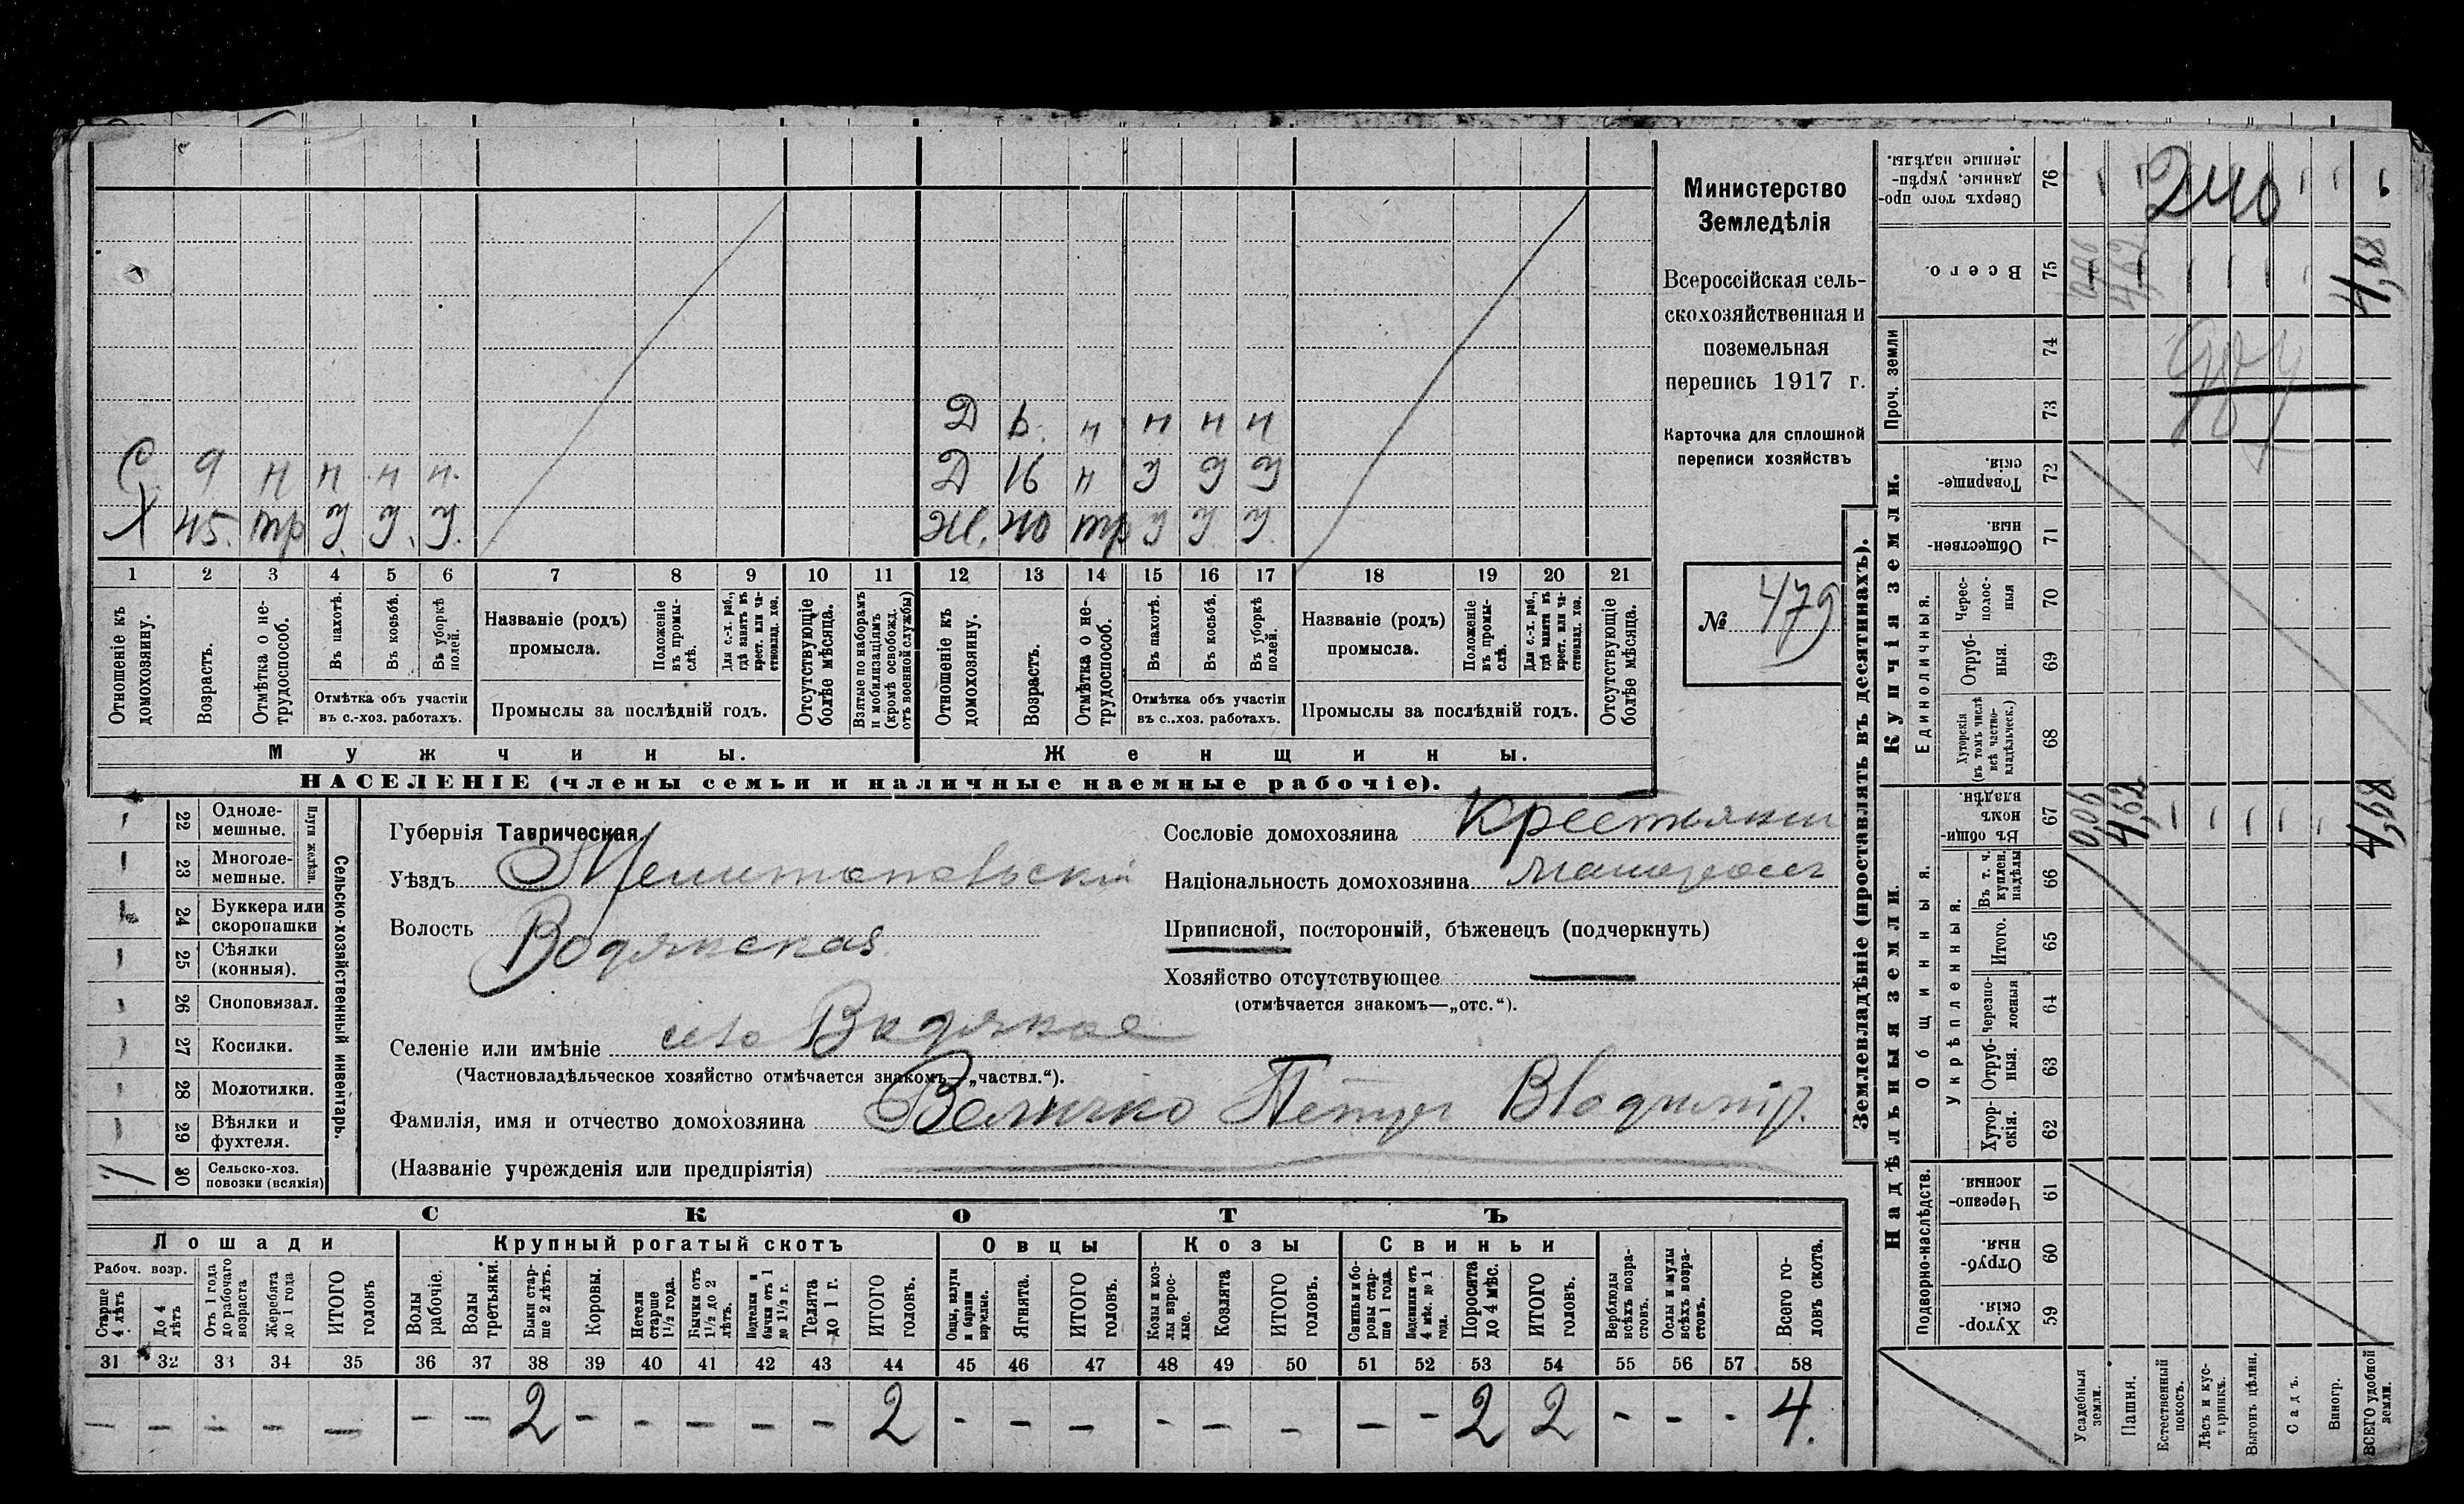 Министерство
Земледѣлія
Всероссійская сель-
скохозяйственная и
поземельная
перепись 1917 г.
Карточка для сплошной
переписи хозяйствъ
№ 479
Д 6. н н н н
С 9 н н н н. Д 16 н У У У
Х 45. тр У. У. У. Ж. 40 тр У У У
1 2 3 4 5 6 7 8 9 10 11 12 13 14 15 16 17 18 19 20 21
Отношеніе къ домохозяину.
Возрастъ.
Отмѣтка о не-трудоспособ.
Въ пахотѣ.
Въ косьбѣ.
Въ уборкѣ полей.
Отмѣтка объ участіи
въ с.-хоз. работахъ.
Названіе (родъ)
промысла.
Положеніе въ промы-слѣ.
Для с.-х. раб., гдѣ занятъ въ крест. или ча-стновлад. хоз.
Промыслы за послѣдній годъ.
Отсутствующіе болѣе мѣсяца.
Взятые по наборамъ и мобилизаціямъ (кромѣ освобожд. отъ военной службы)
Отношеніе къ домохозяину.
Возрастъ.
Отмѣтка о не-трудоспособ.
Въ пахотѣ.
Въ косьбѣ.
Въ уборкѣ полей.
Отмѣтка объ участіи
въ с.-хоз. работахъ.
Названіе (родъ)
промысла.
Положеніе въ промы-слѣ.
Для с.-х. раб., гдѣ занята въ крест. или ча-стновлад. хоз.
Промыслы за послѣдній годъ.
Отсутствующіе болѣе мѣсяца.
Мужчины. Женщины.
НАСЕЛЕНІЕ (члены семьи и наличные наемные рабочіе).
Сельско-хозяйственный инвентарь.
Плуги желѣзн.
22 Одноле-мешные.
23 Многоле-мешные.
24 Буккера или скоропашки
25 Сѣялки (конныя).
26 Сноповязал.
27 Косилки.
28 Молотилки.
29 Вѣялки и фухтеля.
30 Сельско-хоз. повозки (всякія) 1
Губернія Таврическая
Уѣздъ Мелитопольскій
Волость Водянская
Селеніе или имѣніе село Водяное
(Частновладѣльческое хозяйство отмѣчается знакомъ—„частвл.“).
Сословіе домохозяина Крестьянин
Національность домохозяина малоросс
Приписной, посторонній, бѣженецъ (подчеркнуть)
Хозяйство отсутствующее —
(отмѣчается знакомъ—„отс.“).
Фамилія, имя и отчество домохозяина Величко Петръ Владимір.
(Названіе учрежденія или предпріятія)
СКОТЪ
Лошади Крупный рогатый скотъ Овцы Козы Свиньи
Рабоч. возр.
Старше 4 лѣтъ
До 4 лѣтъ
Отъ 1 года до рабочаго возраста
Жеребята до 1 года
ИТОГО головъ
Волы рабочіе.
Волы третьяки.
Быки стар-ше 2 лѣтъ.
Коровы.
Нетели старше 1½ года.
Бычки отъ 1½ до 2 лѣтъ.
Подтелки и бычки отъ 1 до 1½ г.
Телята до 1 г.
ИТОГО головъ.
Овцы, валухи и бараны взрослые.
Ягнята.
ИТОГО головъ.
Козы и коз-лы взрос-лые.
Козлята
ИТОГО головъ.
Свиньи и бо-ровы стар-ше 1 года.
Подсвинки отъ 4 мѣс. до 1 года.
Поросята до 4 мѣс.
ИТОГО головъ.
Верблюды всѣхъ возра-стовъ.
Ослы и мулы всѣхъ возра-стовъ.
Всего го-ловъ скота.
31 32 33 34 35 36 37 38 39 40 41 42 43 44 45 46 47 48 49 50 51 52 53 54 55 56 57 58
— — — — — — — 2 — — — — — 2 — — — — — — — — 2 2 — — — 4.
Землевладѣніе (проставлять въ десятинахъ).
Надѣльныя земли.
Купчія земли.
Проч. земли
Подворно-наслѣдств.
Общинныя.
Укрѣпленныя.
Единоличныя.
Сверхъ того про-данные, укрѣп-ленные надѣлы. 76 240
Всего. 75 0,06 4,62 4,68
74
73
Товарище-скія. 72
Обществен-ныя. 71
Черес-полос-ныя 70
Отруб-ныя. 69
Хуторскія (въ томъ числѣ всѣ частно-владѣльческ.) 68
Въ общин-номъ владѣн. 67 0,06 4,62 4,68
Въ т. ч. куплен. надѣлы 66
Итого. 65
Черезпо-лосныя 64
Отруб-ныя. 63
Хутор-скія. 62
Черезпо-лосныя. 61
Отруб-ныя. 60
Хутор-скія. 59
Усадебныя земли.
Пашня.
Естественный покосъ.
Лѣсъ и кус-тарникъ.
Выгонъ цѣлин.
Садъ.
Виногр.
ВСЕГО удобной земли.